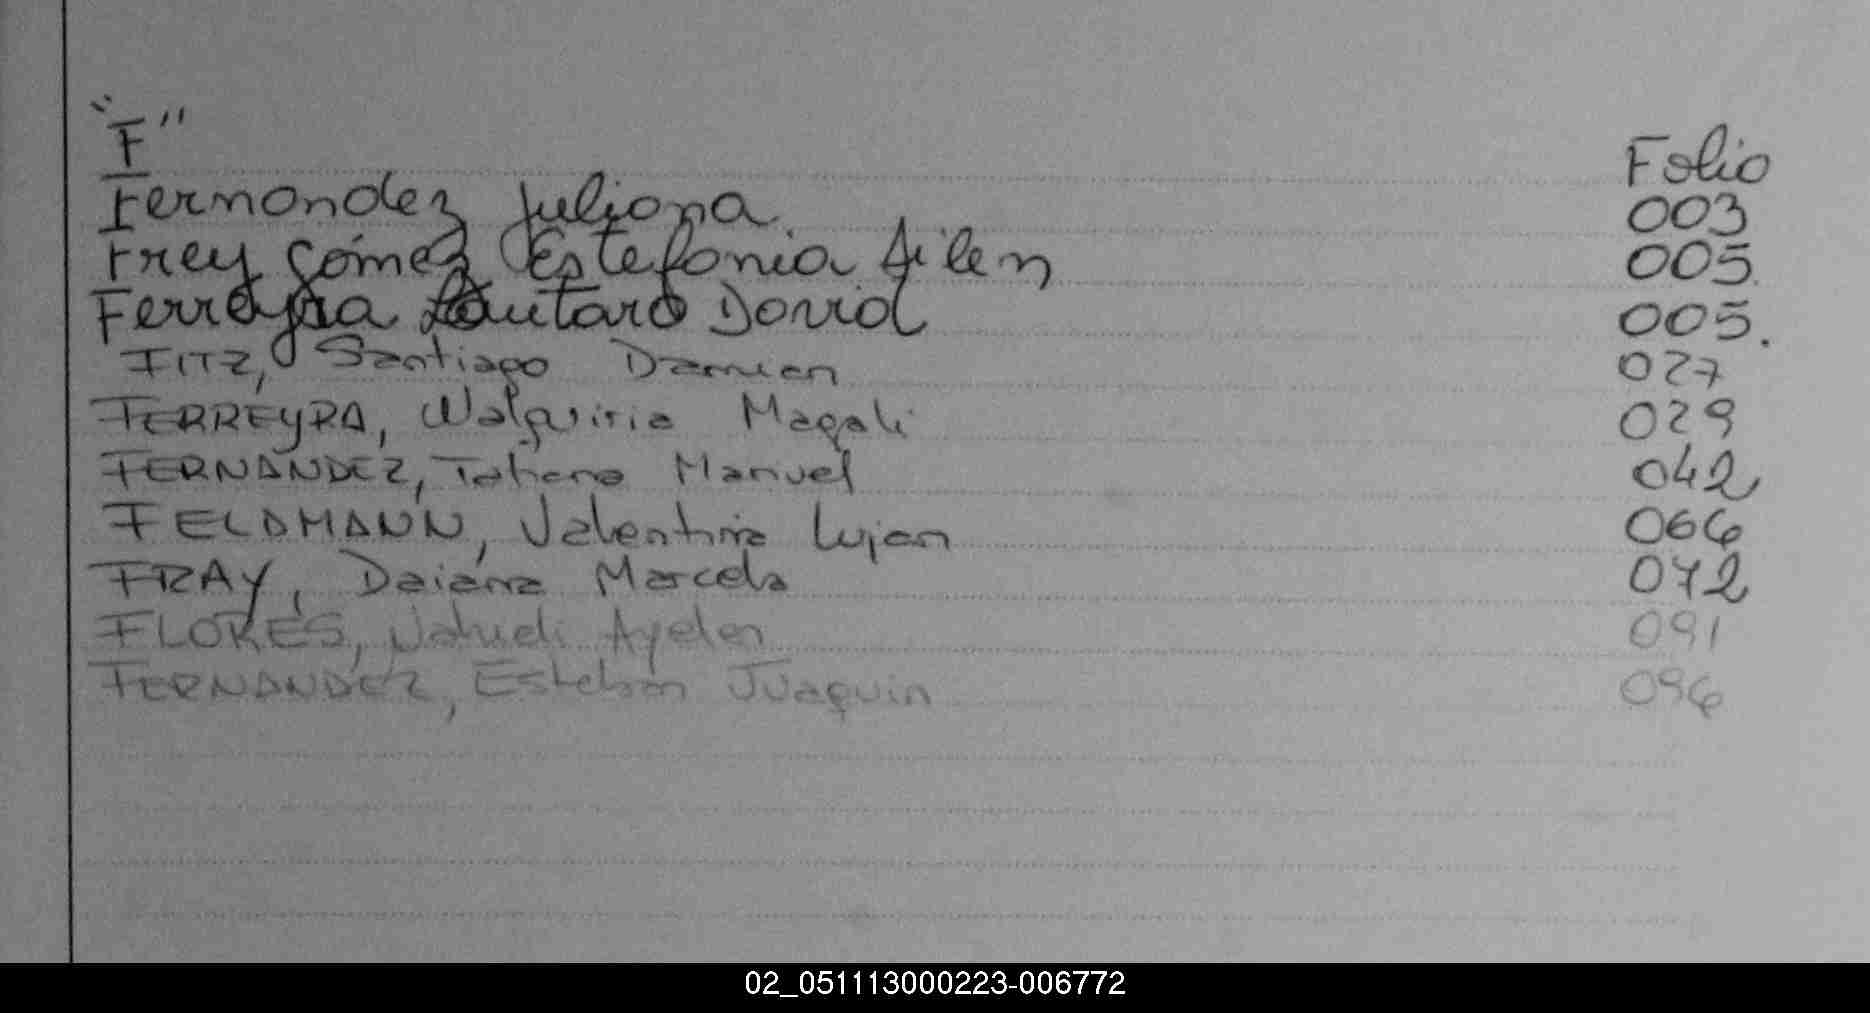 "F" Folio
Fernandez Juliana 003
Frey Gómez Estefania Ailen 005
Ferreyra Lautaro David 005.
FITZ, Santiago Damian 027
FERREYRA, Walquiria Magali 029
FERNANDEZ, Tatiana Marivel 042
FELDMANN, Valentina Lujan 066
FRAY, Daiana Marcela 072
FLORES, Nahueli Ayelen 091
FERNANDEZ, Esteban Juaquin 096
02_051113000223-006772